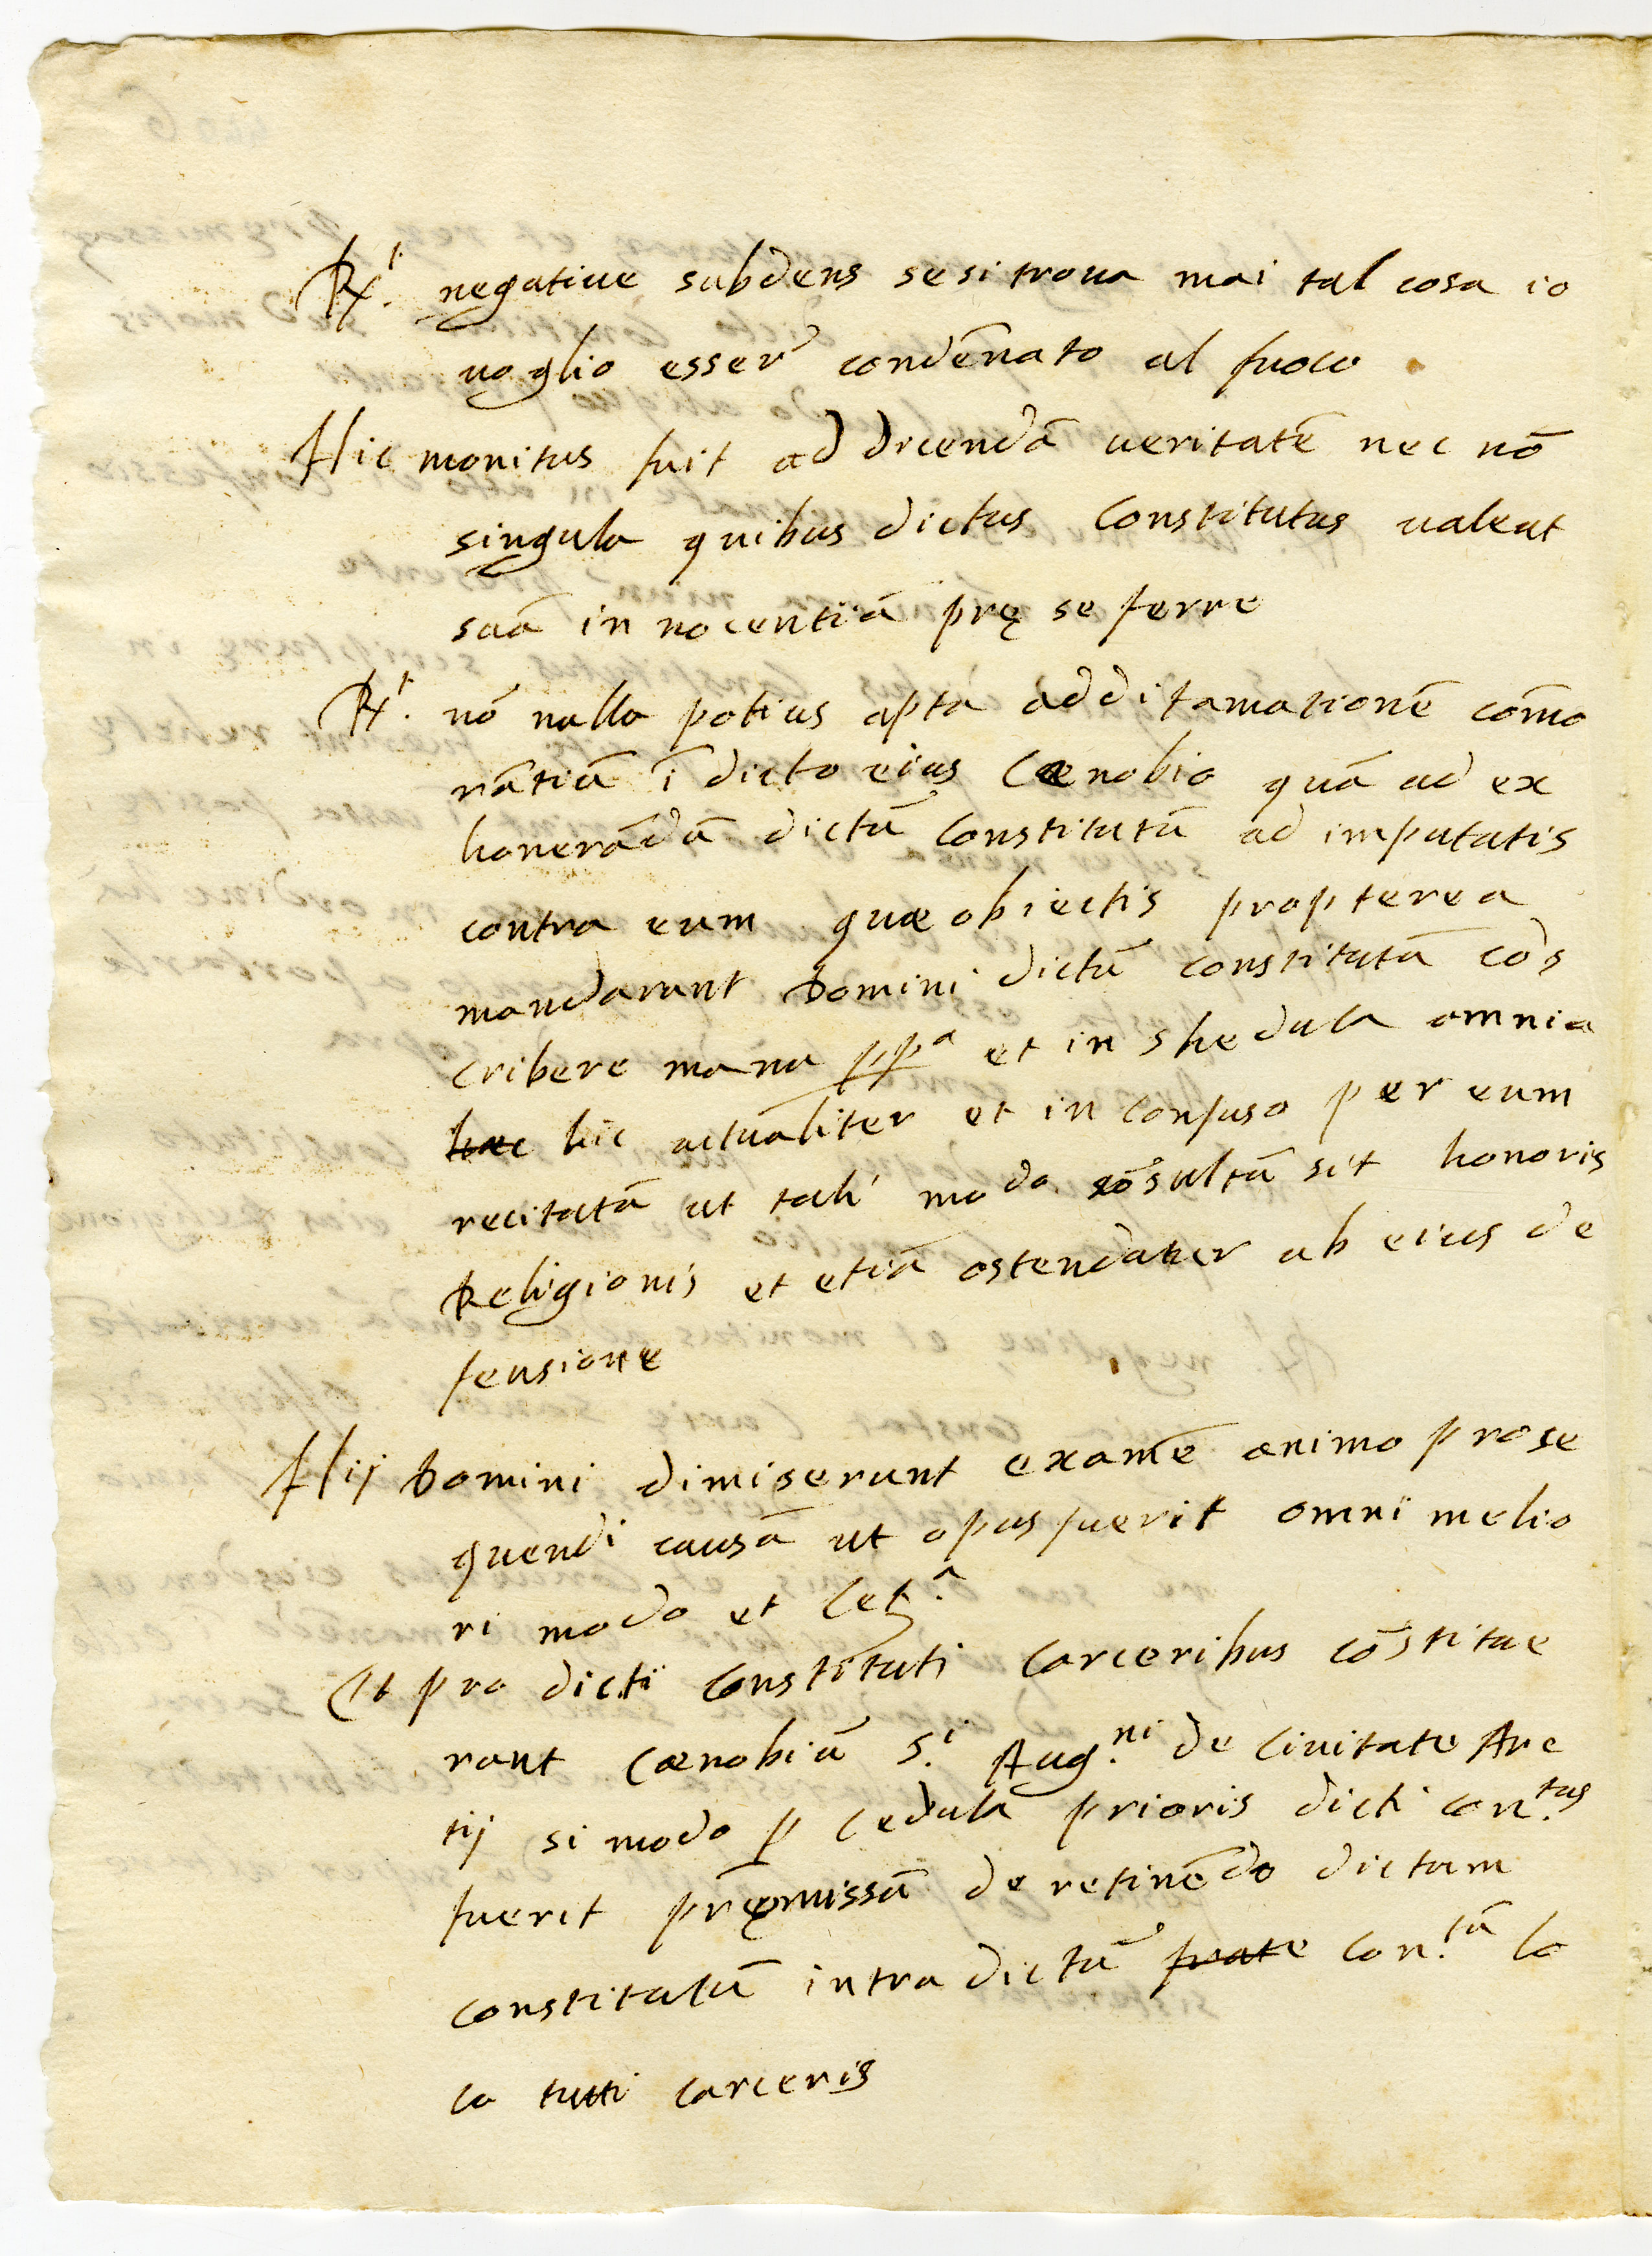 Rx.t negatiue subdens se si troua mai tal cosa io
uoglio esser condēnato al fuoco
Hic monitus fuit ad dicendā ueritatē nec nō
singula quibus dictus Constitutus ualeat
suā in nocentiā prę se ferre
Rx.t nō nulla potius apta ad difamationē com̄o
rātiū ī dicto eius Cœnobio quā ad ex
honerādū dictū Constitutū ad imputatis
contra eum quæ obiectis propterea
mandarunt Domini dictū constitutū cōs
cribere manu ppa et in shedula omnia
haec hic actualiter et in confuso per eum
recitatā ut tali modo cōsultū sit honoris
Religionis et etiā ostendatur ab eius de
fensione
Hij Domini dimiserunt examē animo prose
quendi causā ut opus fuerit omni melio
ri modo et Cet.a
Et pro dicti Constituti Carceribus cōstitue
runt Cœnobiū S.i Aug.ni de Ciuitate Are
tij si modo p Cedula prioris dicti con.tus
fuerit pręmissū de retinēdo dictum
constitutū intra dictū frate Con.tū lo
co tutti Carceris